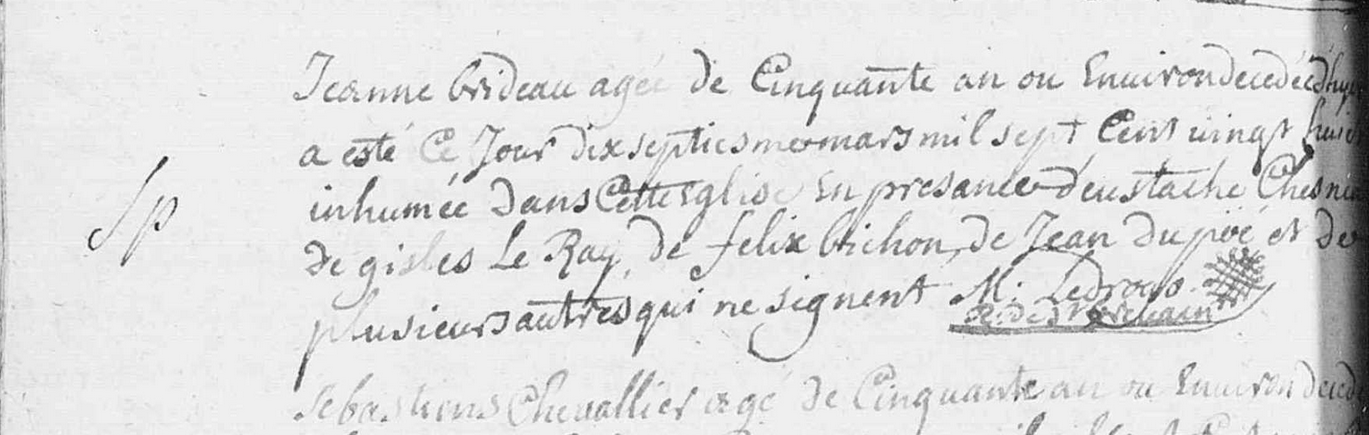 Jeanne brideau agée de Cinquante an ou Environ decedée d'hyer
a esté Ce Jour dix septiesme mars mil sept Cent vingt
Sp
inhumée dans Cette Eglise En presance d'eustache
de gisles Le Ray, de felix bichon, de Jean dupoë et de
plusieurs autres qui ne signent M. Ledroup
R. de St
Sebastiens Chevallier agé de Cinquante an ou Environ